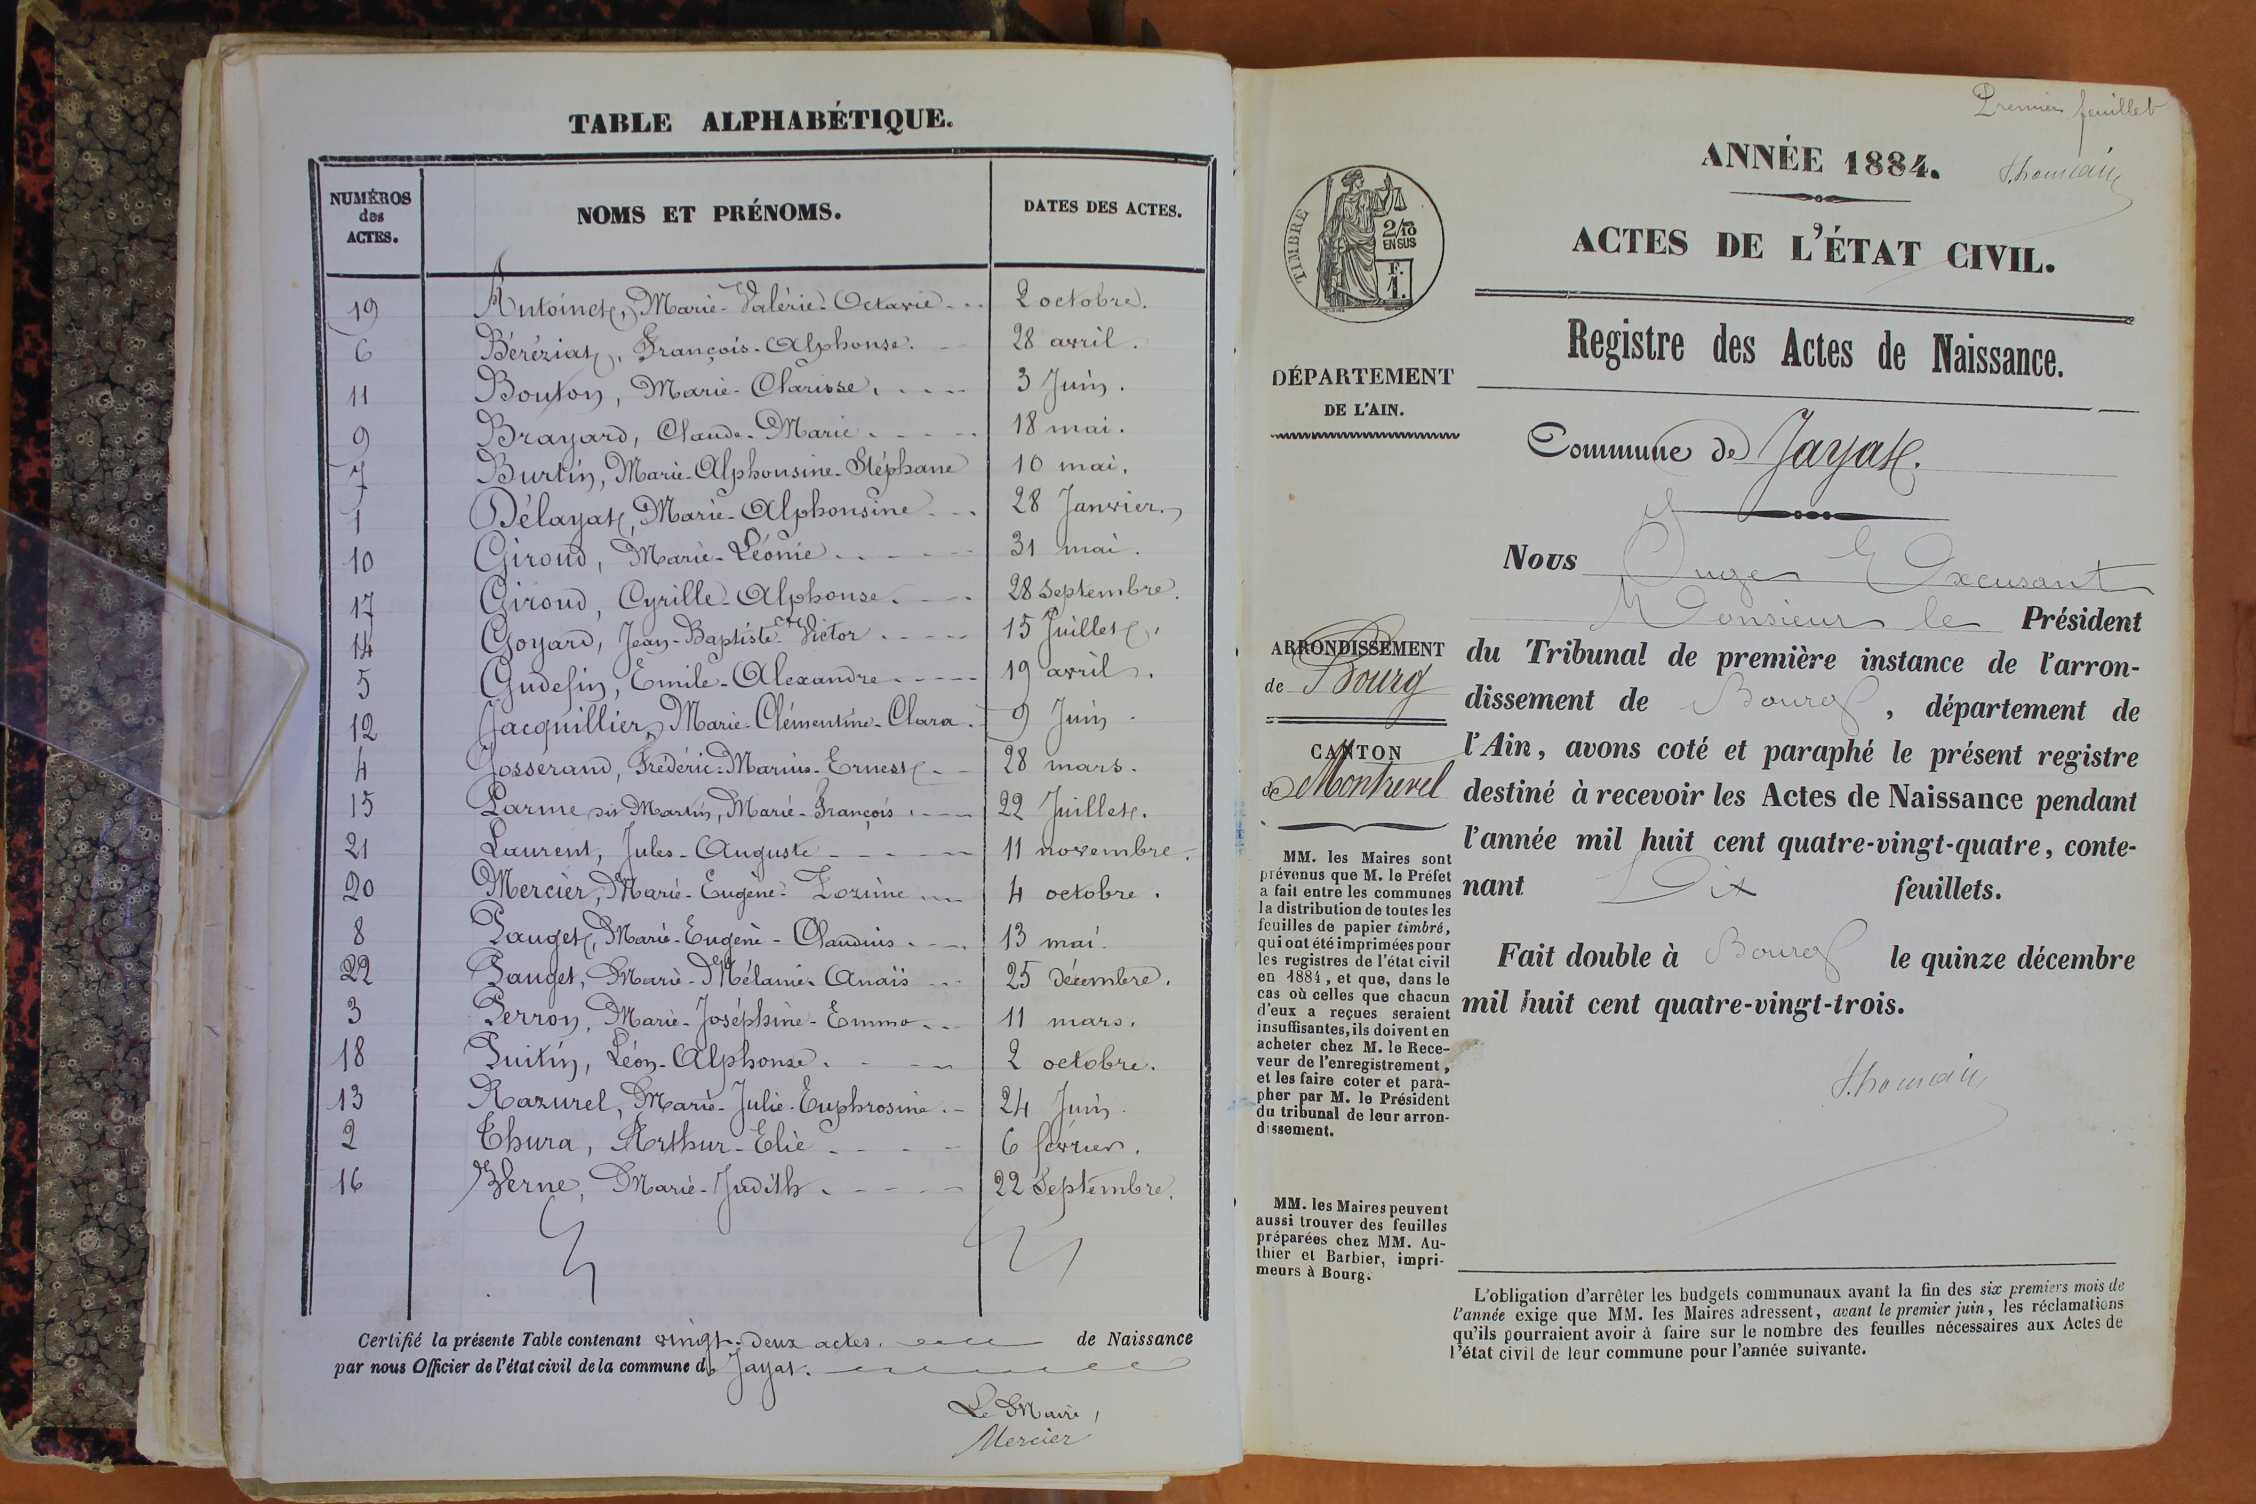 TABLE ALPHABÉTIQUE.
NUMÉROS des ACTES. NOMS ET PRÉNOMS. DATES DES ACTES.
19 Antoinet, Marie-Valérie-Octavie 2 octobre.
6 Béréziat, François-Alphonse. 28 avril.
11 Bouton, Marie-Clarisse. 3 Juin.
9 Brayard, Claude-Marie. 18 mai.
7 Burtin, Marie-Alphonsine-Stéphane 10 mai.
1 Délayat, Marie-Alphonsine 28 Janvier.
10 Giroud, Marie-Léonie 31 mai.
17 Giroud, Cyrille-Alphonse. 28 Septembre.
14 Goyard, Jean-Baptiste-Victor 15 Juillet.
5 Gudefin, Emile-Alexandre 19 avril.
12 Jacquillier, Marie-Clémentine-Clara. 9 Juin
4 Josserand, Frédéric-Marius-Ernest 28 mars.
15 Larme dit Martin, Marie-François. 22 Juillet.
21 Laurent, Jules-Auguste 11 novembre.
20 Mercier, Marie-Eugène-Zozime 4 octobre.
8 Pauget, Marie-Eugène-Claudius. 13 mai.
22 Pauget, Marie-Mélanie-Anaïs 25 décembre.
3 Perron, Marie-Joséphine-Emma. 11 mars.
18 Puitin, Léon-Alphonse. 2 octobre.
13 Razurel, Marie-Julie-Euphrosine. 24 Juin.
2 Thura, Arthur-Elie 6 février.
16 Verne, Marie-Judith. 22 Septembre.
Certifié la présente Table contenant vingt-deux actes. de Naissance
par nous Officier de l'état civil de la commune de Jayat.
Le Maire,
Mercier
Premier feuillet
ANNÉE 1884.
Thomain
ACTES DE L'ÉTAT CIVIL.
TIMBRE
2/10
EN SUS
F.
1.
Registre des Actes de Naissance.
DÉPARTEMENT
DE L'AIN.
Commune de Jayat.
ARRONDISSEMENT
de Bourg
CANTON
de Montrevel
MM. les Maires sont
prévenus que M. le Préfet
a fait entre les communes
la distribution de toutes les
feuilles de papier timbré,
qui ont été imprimées pour
les registres de l'état civil
en 1884, et que, dans le
cas où celles que chacun
d'eux a reçues seraient
insuffisantes, ils doivent en
acheter chez M. le Rece-
veur de l'enregistrement,
et les faire coter et para-
pher par M. le Président
du tribunal de leur arron-
dissement.
MM. les Maires peuvent
aussi trouver des feuilles
préparées chez MM. Au-
thier et Barbier, impri-
meurs à Bourg.
Nous Juge Excusant
Monsieur le Président
du Tribunal de première instance de l'arron-
dissement de Bourg, département de
l'Ain, avons coté et paraphé le présent registre
destiné à recevoir les Actes de Naissance pendant
l'année mil huit cent quatre-vingt-quatre, conte-
nant Dix feuillets.
Fait double à Bourg le quinze décembre
mil huit cent quatre-vingt-trois.
Thomain
L'obligation d'arrêter les budgets communaux avant la fin des six premiers mois de
l'année exige que MM. les Maires adressent, avant le premier juin, les réclamations
qu'ils pourraient avoir à faire sur le nombre des feuilles nécessaires aux Actes de
l'état civil de leur commune pour l'année suivante.